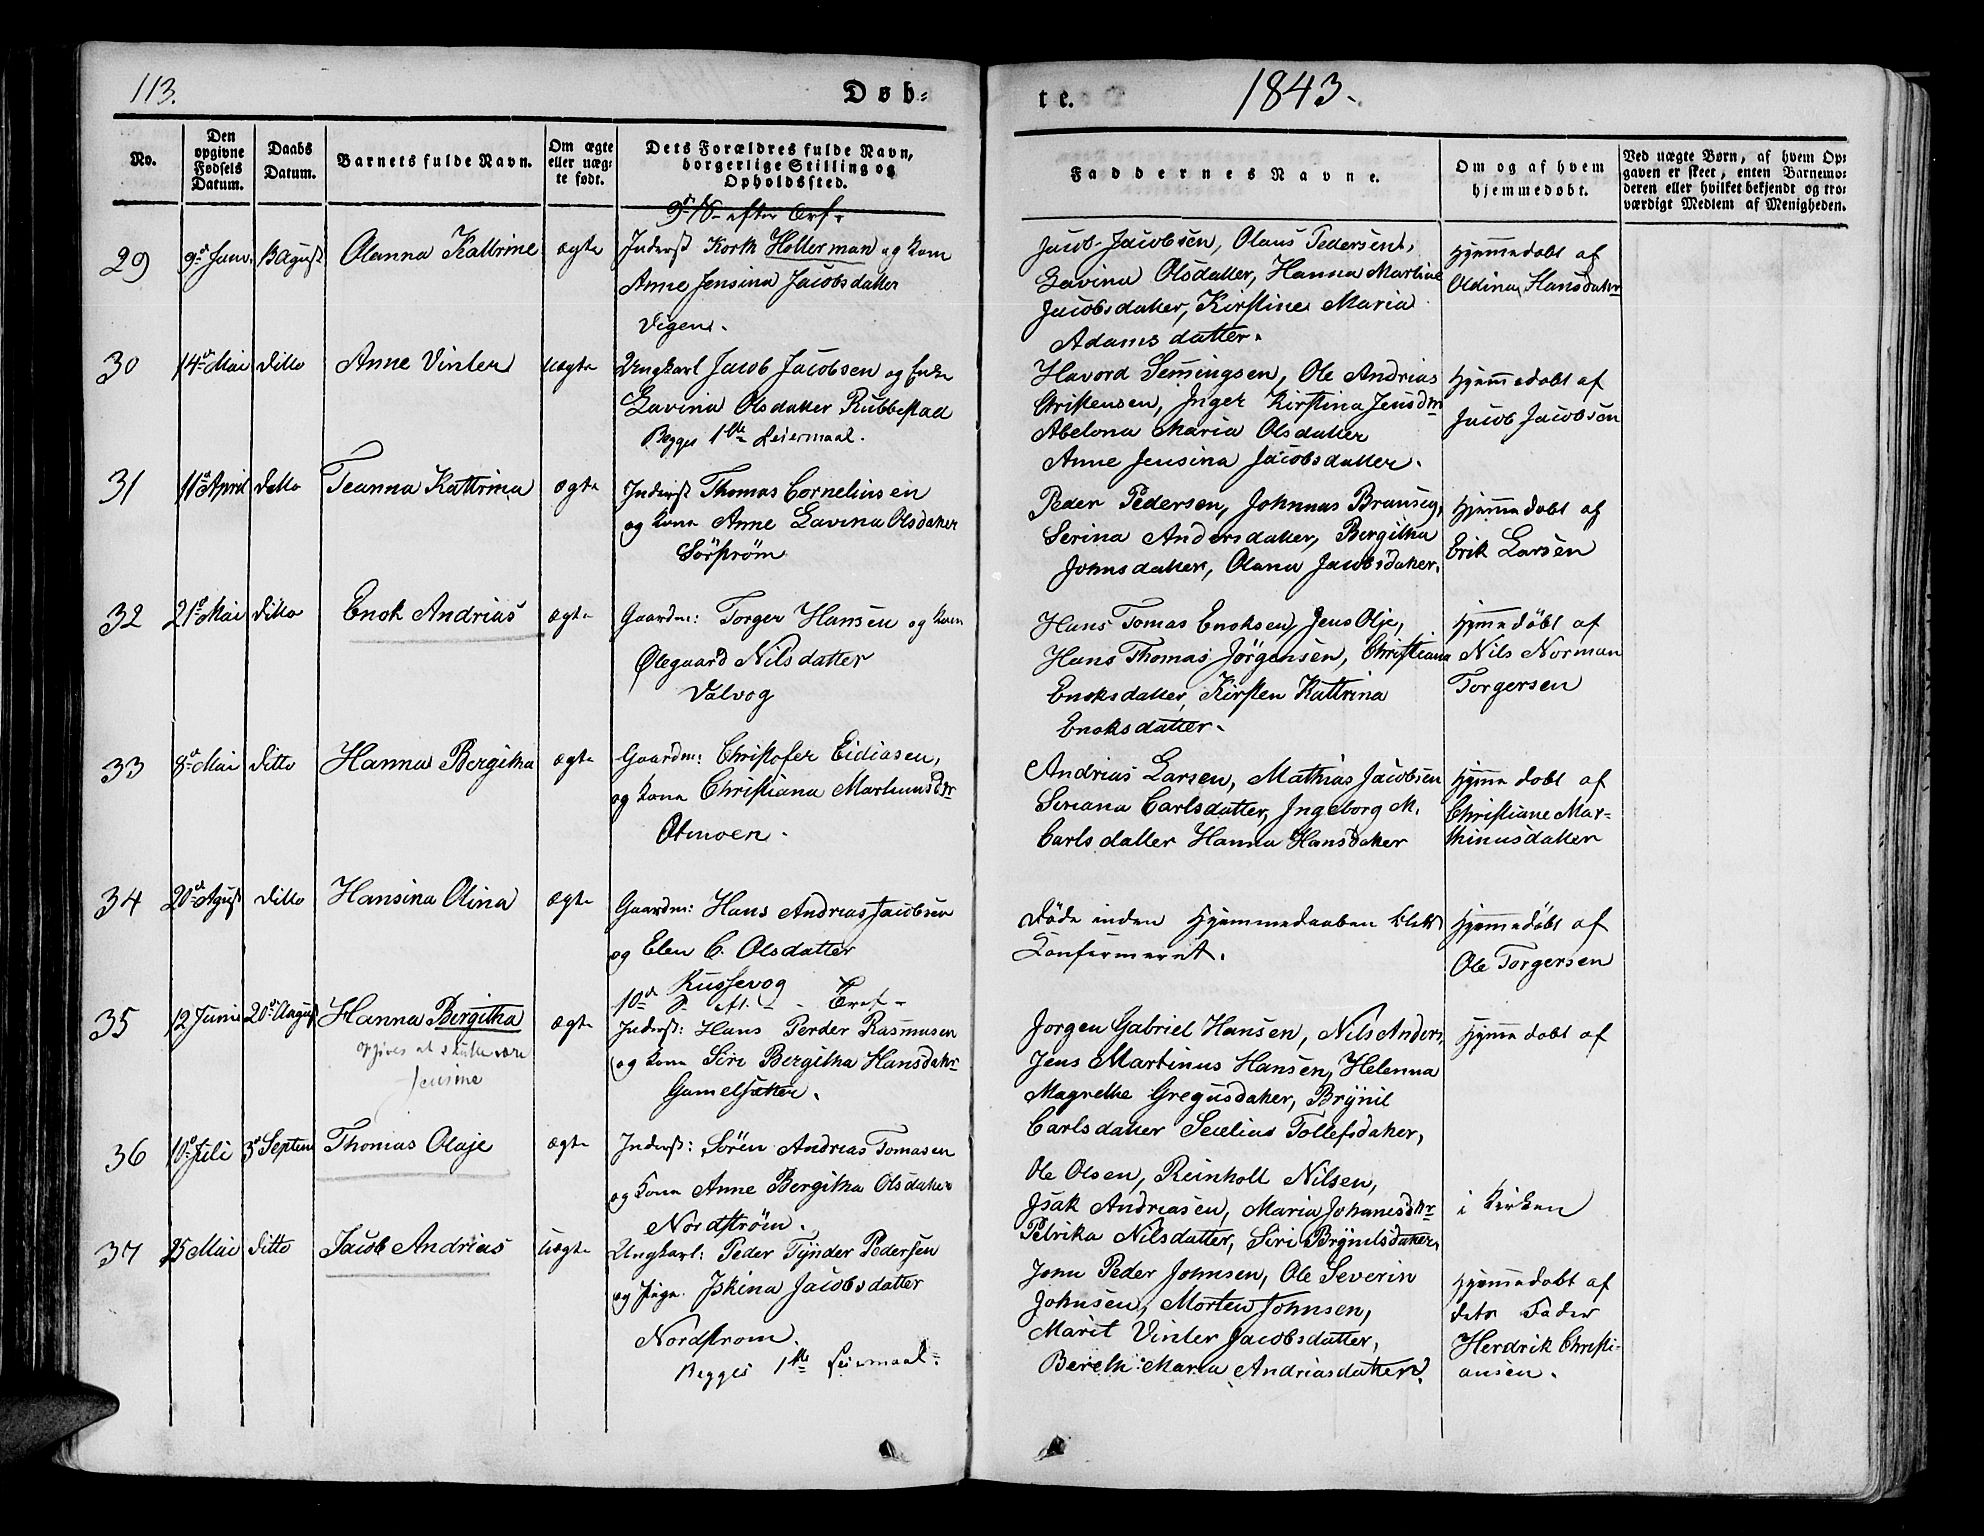 113.
Døb=
te.
1843.
No.
Den opgivne Fødsels Datum.
Daabs Datum.
Barnets fulde Navn.
Om ægte eller uæg= te født.
Dets Forældres fulde Navn, borgerlige Stilling og Opholdssted.
Faddernes Navne.
Om og af hvem hjemmedøbt.
Ved uægte Børn, af hvem Op= gaven er skeet, enten Barnemo= deren eller hvilket bekjendt og tro= værdigt Medlem af Menigheden.
efter
29 9de Juni B August Olanna Kathrine ægte
Inderst Hollerman og kone
Anne Jensina Jacobsdatter
Vigen.
Jacob Jacobsen, Olaus Pedersen,
Lavina Olsdatter, Hanna Martine
Jacobsdatter, Kirstine Maria
Adamsdatter.
Hjemmedøbt af
Oldina Hansdatter
30 14de Mai ditto Anne Vinter uægte
Ungkarl Jacob Jacobsen og Enke
Lavina Olsdatter Rubbestad
Begges 1ste Leiermaal.
Havord Semingsen, Ole Andrias
Christensen, Inger Kirstina Jensdtr
Abelona Maria Olsdatter
Anne Jensina Jacobsdatter.
Hjemmedobt af
Jacob Jacobsen
31 11de April ditto Teanna Kathrina ægte
Inderst Thomas Corneliusen
og kone Anne Lavina Olsdatter
Sörstrøm
Peder Pedersen, Johnnas
Serina Andersdatter, Bergitha
Johnsdatter, Olana Jacobsdatter.
Hjemmedobt af
Erik Larsen
32 21de Mai ditto Enok Andrias ægte
Gaardm: Torger Hansen og kone
Ølegaard Nilsdatter
Valvog
Hans Tomas Enoksen, Jens Olje,
Hans Thomas Jörgensen, Christiana
Enoksdatter, Kirsten Kathrina
Enoksdatter.
Hjemmedöbt af
Nils Norman
Torgersen
33 8de Mai ditto Hanna Bergitha ægte
Gaardm: Christofer Eidiasen,
og kone Christiana Marthinusdtr
Otmoen.
Andrias Larsen, Mathias Jacobsen
Seriana Carlsdatter, Ingeborg M.
Carlsdatter Hanna Hansdatter
Hjemmedobt af
Christiane Mar=
thinusdatter
34 20de Agust ditto Hansina Olina ægte
Gaardm: Hans Andrias Jacobsen
og Elen C. Olsdatter
Kussevog
Døde inden Hjemmedaaben blev
Confirmeret.
Hjemmedöbt af
Ole Torgersen
10de
35 12 Juni 20de August Hanna Bergitha ægte
opgives at skulle være
Jensine
Inderst: Hans Perder Rasmusen
og kone Siri Bergitha Hansdatr
Gamelsæter.
Jorgen Gabriel Hansen, Nils Anders,
Jens Martinus Hansen, Helenna
Magrethe Gregusdatter, Brÿnil
Carlsdatter Tollefsdatter,
Hjemmedobt af
36 10de Juli 3de Septem Thomas Olaje ægte
Inderst: Sören Andreas Tomasen
og kone Anne Bergitha Olsdatter
Nordström.
Ole Olsen, Reinholt Nilsen,
Isak Andreasen, Maria Johanesdtr
Petrika Nilsdatter, Siri Brÿnilsdatter.
i Kirken
37 25 Mai ditto Jacob Andrias uægte
Ungkarl: Peder Tÿnder Pedersen
og Pige Iskina Jacobsdatter
Nordstrom.
Begges 1ste Leiermaal.
John Peder Johnsen, Ole Severin
Johnsen, Morten Johnsen,
Marit Vinter Jacobsdatter,
Maria Andriasdatter.
Hjemmedobt af
dets Fader
Herdrik Christi-
ansen.